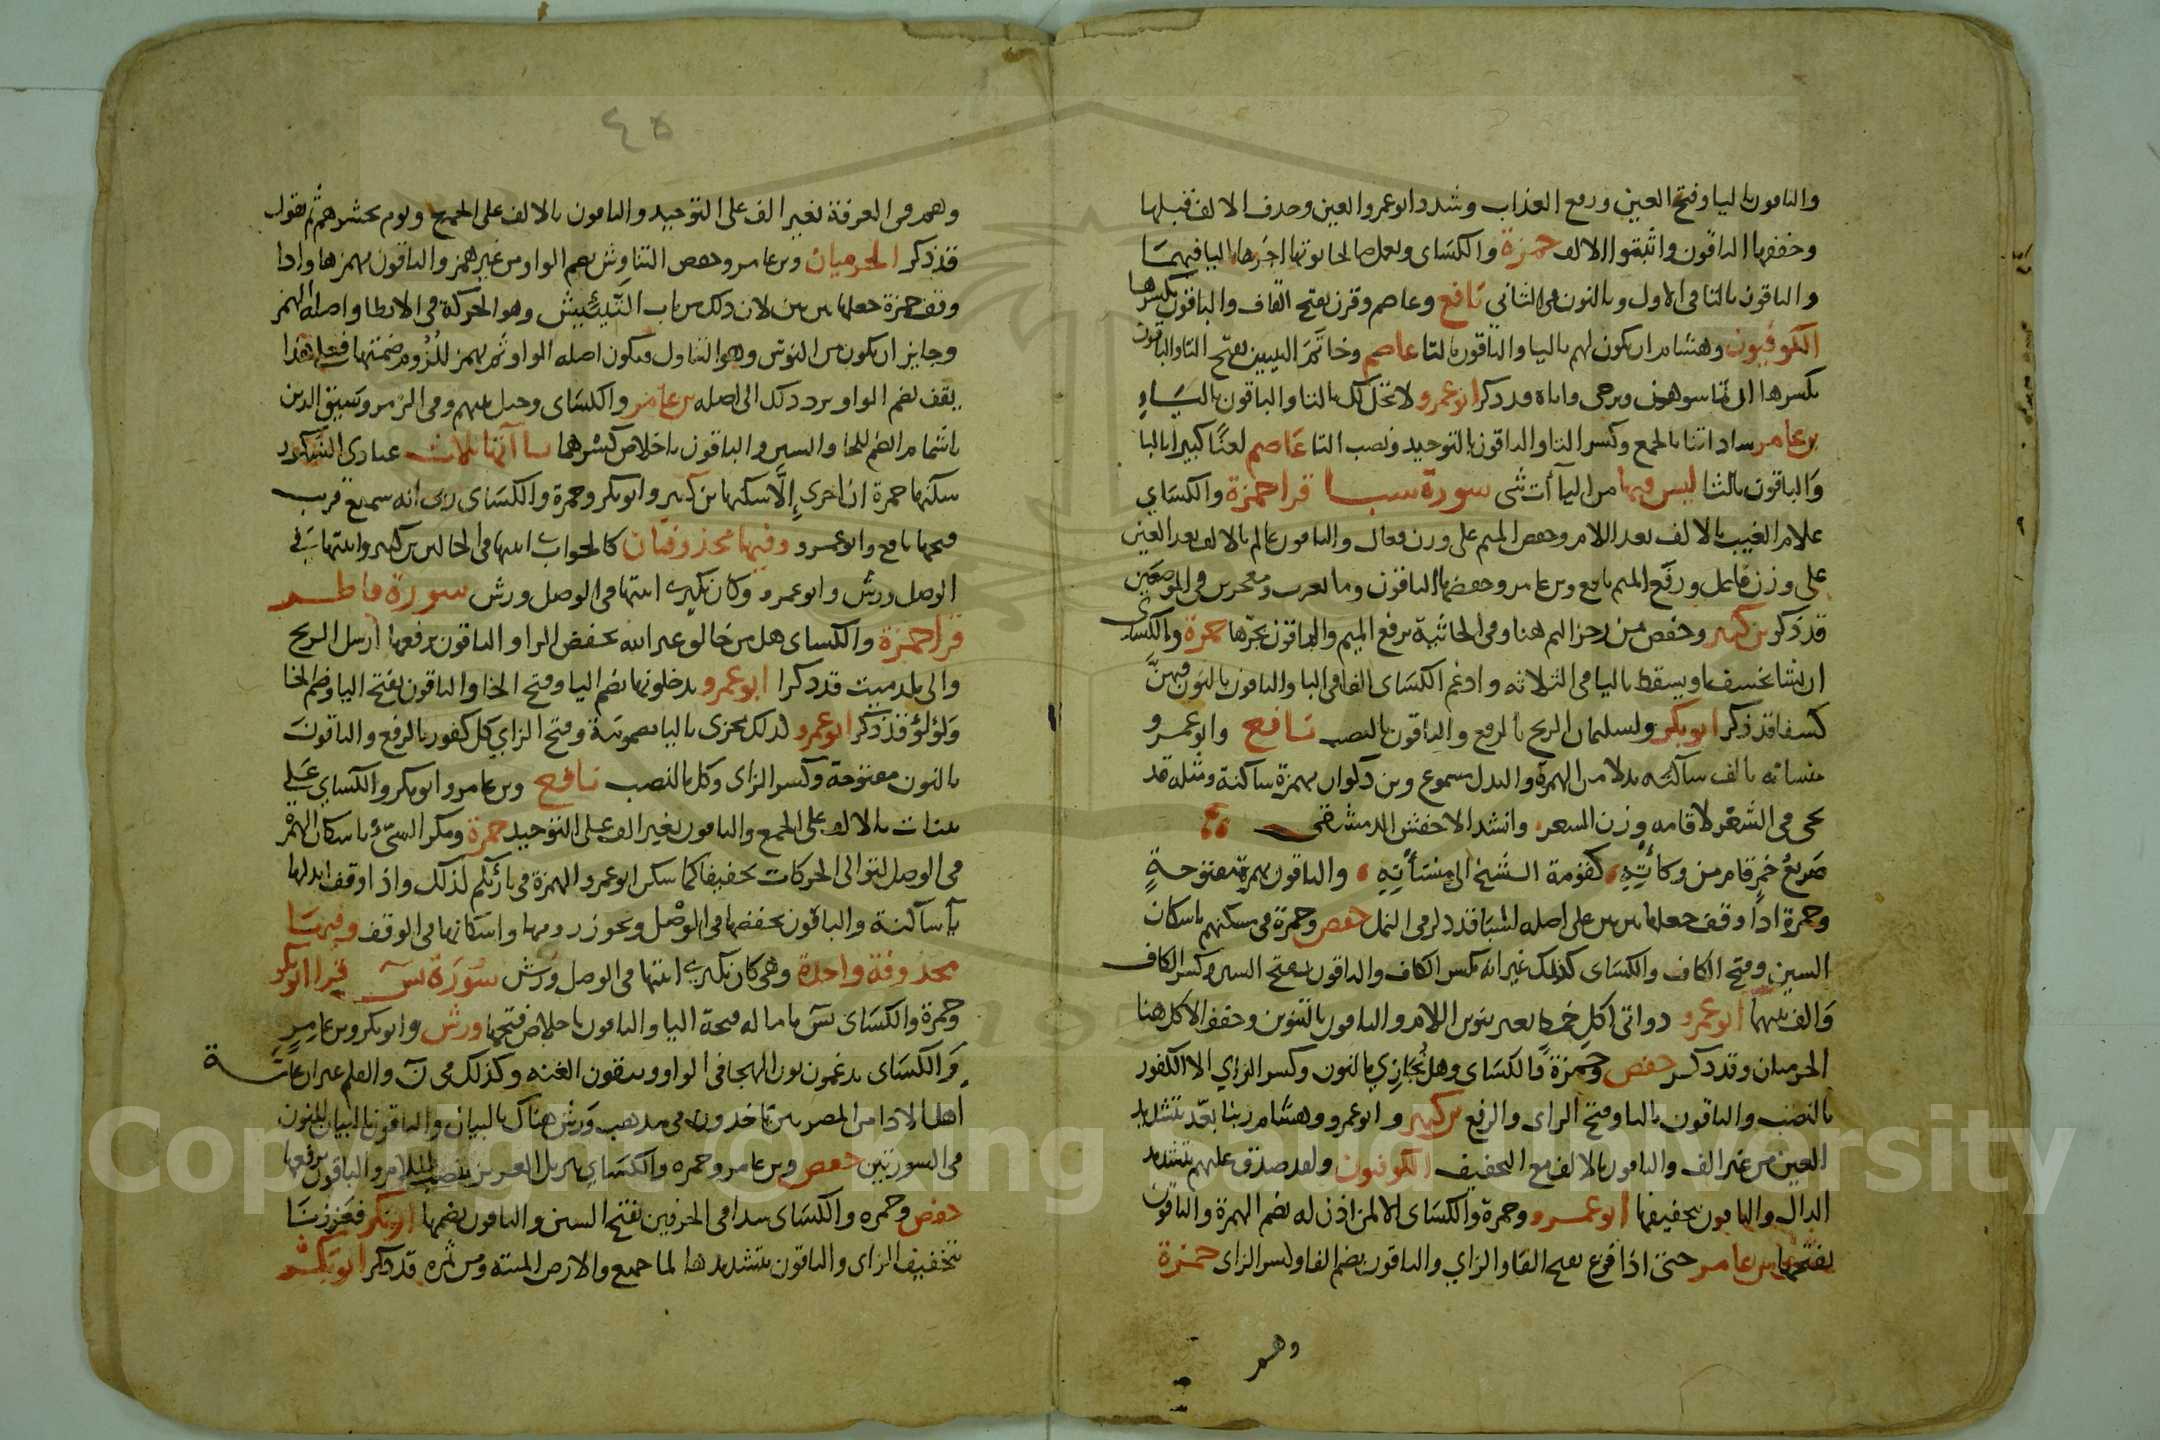 والباقون بالياء وفتح العين ورفع العذاب وشدد ابو عمرو العين وحذف الالف قبلها
وخففها الباقون واثبتوا الالف حمزة والكسَاى ويعمل صالحا يوتها اجرها باليا فيهمَا
والباقون بالتا فى الاول وبالنون فى الثانى نافع وعاصم وقرن بفتح القاف والباقون بكسرها
الكوفيون وهشام ان يكون لهم باليا والباقون بالتا عاصم وخاتَمَ النبيين بفتح التا والباقون
بكسرها ان تماسوهن وترجى واناه قد ذكر ابو عمرو لا تحل لك بالتا والباقون باليَاءِ
بن عامر ساداتنا بالجمع وكسر التا والباقون بالتوحيد ونصب التا عاصم لعنًا كبيرا بالبا
وَالباقون بالثا ليس فيها من اليآأت شى سورة سبا قرا حمزة والكسَاي
علام الغيب بالالف بعد اللام وخفض الميم على وزن فعال والباقون عالم بالالف بعد العين
على وزن فاعل ورفع الميم نافع وبن عامر وخفضها الباقون وما يعزب ومعجزين فى الموضعين
قد ذكر بن كثير وحفص من رجز اليم هنا وفى الجاثية برفع الميم والباقون بجرّها حمزة والكسَاى
ان يشا يخسف او يسقط باليا فى الثلاثه وادغم الكسَاى الفا فى البا والباقون بالنون فيهنَّ
كسفا قد ذكر ابو بكر ولسليمان الريح بالرفع والباقون بالنصب نافع وابو عمرو
منساته بالف ساكنه بدلا من الهمزة والبدل مسموع وبن ذكوان بهمزة ساكنة ومثله قد
يجى فى الشعر لاقامه وزن الشعر وانشد الاخفش الدمشقى
صَريعُ خمرٍ قام من وكأتِهِ كقومة الشيخ الى منسَأتِهِ والباقون بهمزة مفتوحةٍ
وحمزة اذا وقف جعلها بين بين على اصله لسَبَا قد ذكر فى النمل حفص وحمزة فى مسكنهم باسكان
السين وفتح الكاف والكسَاى كذلك غير انه بكسر الكاف والباقون بفتح السين وكسر الكاف
وَالف بينهما ابو عمرو ذواتى اكلِ خمطٍ بغير تنوين اللام والباقون بالتنوين وخفف الاكل هنا
الحرميان وقد ذكر حفص وحمزة والكسَاى وهل نُجَازِي بالنون وكسر الزاي الا الكفور
بالنصب والباقون باليا وفتح الزاى والرفع بن كثير وابو عمرو وهشام ربنا بعّد بتشديد
العين من غير الف والباقون بالالف مع التخفيف الكوفيون ولقد صدق عليهم بتشديد
الدال والباقون بتخفيفها ابو عمرو وحمزة والكسَاى الا لمن اذن له بضم الهمزة والباقون
بفتحها بن عامر حتى اذا فزع بفتح الفا والزاي والباقون بضم الفا وكسر الزاى حمزة
وهم
٤٥
وهم فى الغرفة بغير الف على التوحيد والباقون بالالف على الجمع ويوم يحشرهم ثم يقول
قد ذكر الحرميان وبن عامر وحفص التناوش بضم الواو من غير همز والباقون بهمزها واذا
وقف حمزة جعلها بين بين لان ذلك من باب النَّئِيش وهو الحركة فى الابطا واصله الهمز
وجايز ان يكون من النوش وهو التناول فيكون اصله الواو ثم يهمز للزوم ضمتها فعلى هذا
يقف بضم الواو يردد ذلك الى اصله بن عامر والكسَاى وحيل بينهم وفى الزمر وسيق الذين
باشمام الضم للحا والسين والباقون باخلاص كسرهما يا آتها ثلاث عبادى الشكور
سكنها حمزة ان اجرى إلّا سكنها بن كثير وابو بكر وحمزة والكسَاى ربى انه سميع قريب
فتحها نافع وابو عمرو وفيها محذوفتان كالجواب اثبتها فى الحالين بن كثير واثبتها فى
الوصل ورش وابو عمرو وكان نكيرى اثبتها فى الوصل ورش سورة فاطر
قرا حمزة والكسَاى هل من خالق غير الله بخفض الرا والباقون برفعها ارسل الريح
والى بلد ميت قد ذكرا ابو عمرو يدخلونها بضم اليا وفتح الخا والباقون بفتح اليا وضم الخا
وَلؤلؤ قد ذكر ابو عمرو كذلك يجزى باليا مضمومة وفتح الزاي كل كفور بالرفع والباقونَ
بالنون مفتوحة وكسر الزاى وكل بالنصب نافع وبن عامر وابو بكر والكسَاي على
بينات بالالف على الجمع والباقون بغير الف على التوحيد حمزة ومكر السىّء باسكان الهمزة
فى الوصل لتوالى الحركات تخفيفا كما سكن ابو عمرو الهمزة فى بارئكم لذلك واذا وقف ابدلها
يآ ساكنة والباقون بخفضها فى الوصْل ويجوز رومها واسكانها فى الوقف وفيهَا
محذوفة واحدة وهى كان نكيرى اثبتها فى الوصل ورش سُورَة يسَ قرا ابو بكر
وحمزة والكسَاى يسَ بامالة فتحة اليا والباقون باخلاص فتحها ورش وابو بكر وبن عامِرٍ
وَالكسَاى يدغمون نون الهجا فى الواو ويبقون الغنه وكذلك فى نَ والقلم غير ان عامَّة
اهل الادا من المصريين ياخذون فى مذهب وَرش هناك بالبيان والباقون بالبيان للنون
فى السورتين حفص وبن عامر وحمزه والكسَاي تنزيل العزيز بنصب اللام والباقون برفعها
حفص وحمزه والكسَاى سدا فى الحرفين بفتح السين والباقون بضمها ابو بكر فعززنَا
بتخفيف الزاى والباقون بتشديدها لما جميع والارض الميتة ومن ثمره قد ذكر ابو بَكْر
Copyright © King Saud University